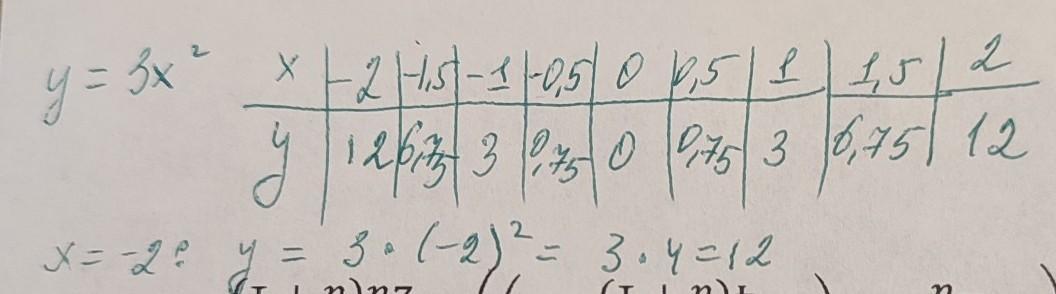 y = 3x² x | -2 | -1,5 | -1 | -0,5 | 0 | 0,5 | 1 | 1,5 | 2
y | 12 | 6,75 | 3 | 0,75 | 0 | 0,75 | 3 | 6,75 | 12
x = -2: y = 3 · (-2)² = 3 · 4 = 12